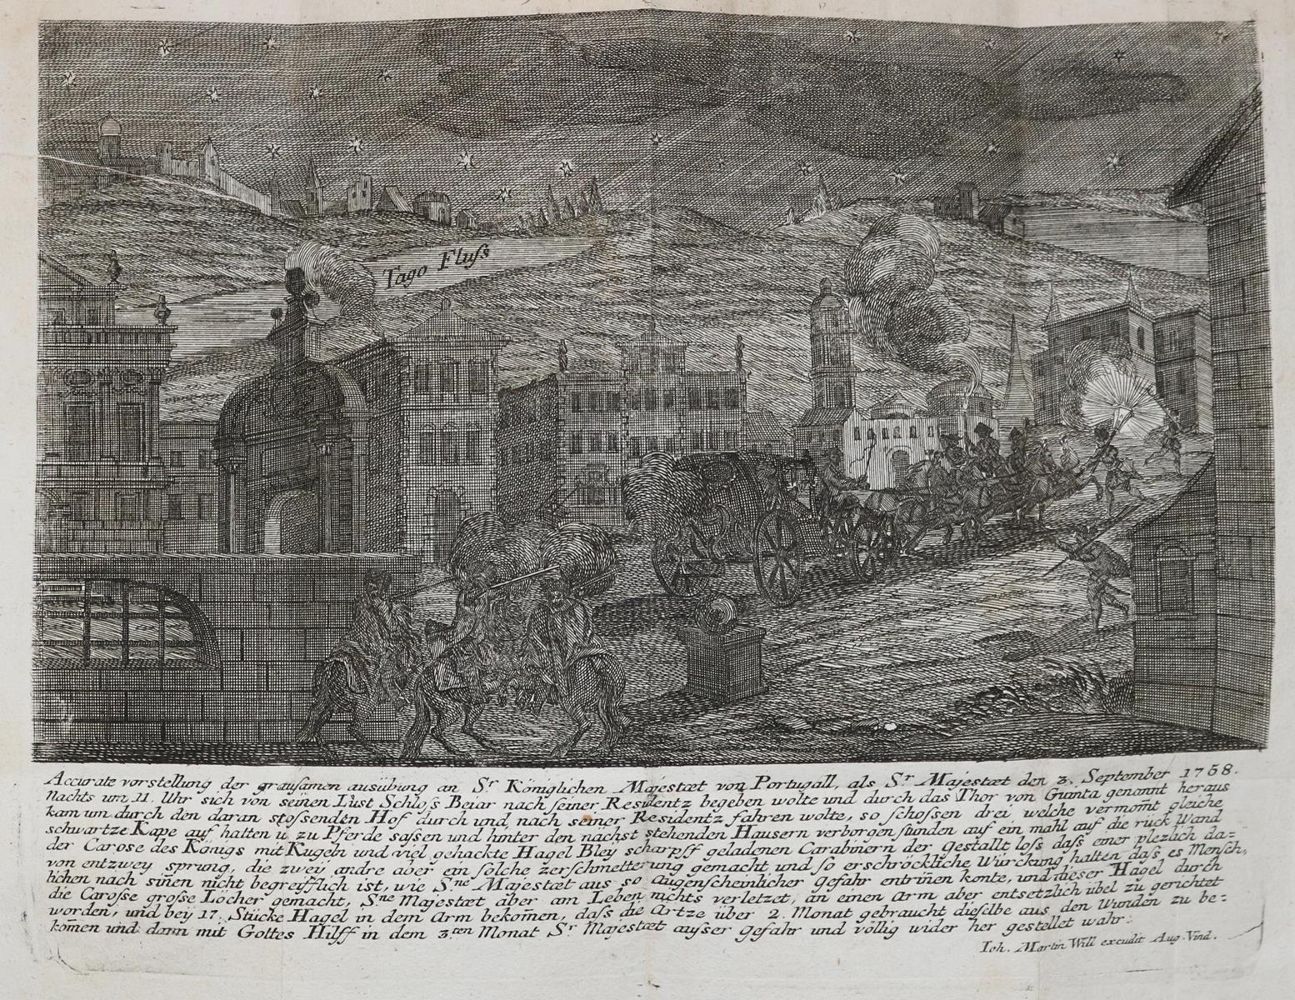 Tago Fluſs
Accurate vorstellung der grausamen ausübung an Sr. Königlichen Majestæt von Portugall, als Sr. Majestæt den 3. September 1758.
Nachts um 11. Uhr sich von seinen Lust Schloſs Beiar nach seiner Residentz begeben wolte und durch das Thor von Guinta genannt heraus
kam um durch den daran stoſsenden Hof durch und nach seiner Residentz fahren wolte, so ſchoſsen drei welche vermom̄t gleiche
schwartze Kape auf halten u. zu Pferde saſsen und hinter den nächst stehenden Hausern verborgen ſtunden auf ein mahl auf die rück Wand
der Carose des Königs mit Kugeln und viel gehackte Hagel Bley scharpff geladenen Carabinern der gestallt loſs daſs einer plezlich da=
von entzwey sprung, die zwei andre aber ein solche zerschmetterung gemacht und ſo erschröckliche Würckung halten das es Mensch,
lichen nach sin̄en nicht begreifflich ist, wie Sne. Majestæt aus so augenscheinlicher Gefahr entrin̄en konte, und dieser Hagel durch
die Caroſse groſse Löcher gemacht, Sne. Majestæt aber am Leben nichts verletzet, an einen Arm aber entsetzlich übel zu gerichtet
worden, und bey 17. Stücke Hagel in dem Arm bekom̄en, daſs die Artze über 2. Monat gebraucht dieselbe aus den Wunden zu be=
kom̄en und dann mit Gottes Hilff in dem 3.ten Monat Sr. Majestæt auſser gefahr und völlig wider her gestellet wahr.
Ioh. Martin Will excudit Aug. Vind.